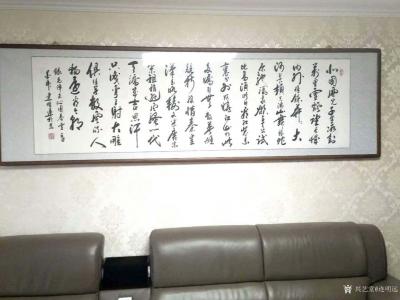 北国风光千里冰封
万里雪飘望长城
内外惟余莽莽大
河上下顿失滔滔山舞银蛇
原驰蜡象欲与天公试
比高须晴日看红装素
裹分外妖娆江山如此
多娇引无数英雄
竞折腰惜秦皇
汉武略输文采唐宗
宋祖稍逊风骚一代
天骄成吉思汗
只识弯弓射大雕
俱往矣数风流人
物还看今朝
兴艺堂@连明远